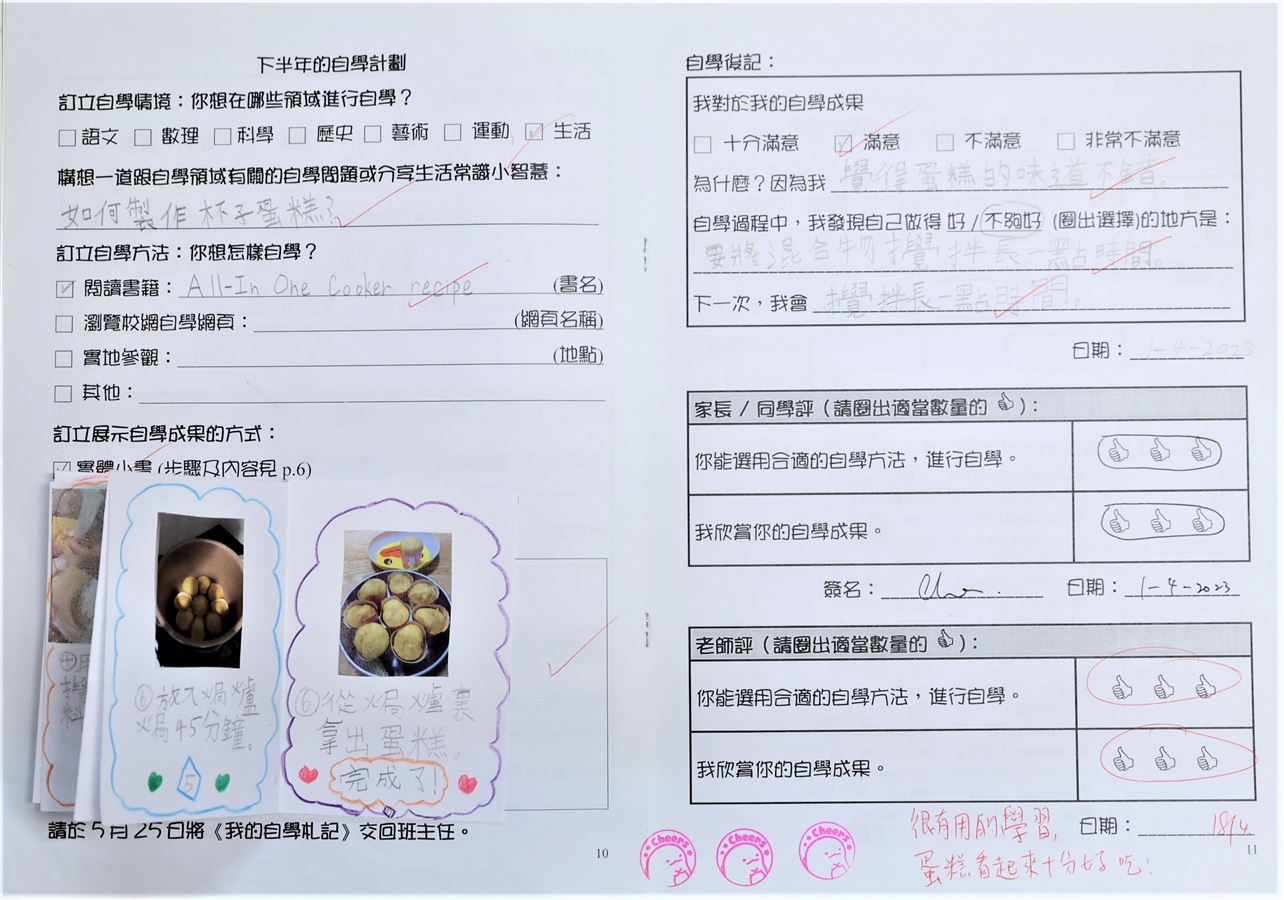 下半年的自學計劃
訂立自學情境：你想在哪些領域進行自學？
語文 數理 科學 歷史 藝術 運動 生活
構想一道跟自學領域有關的自學問題或分享生活常識小智慧：
如何製作杯子蛋糕？
訂立自學方法：你想怎樣自學？
閱讀書籍：All-In One Cooker recipe (書名)
瀏覽校網自學網頁： (網頁名稱)
實地參觀： (地點)
其他：
訂立展示自學成果的方式：
實體小書 (步驟及內容見 p.6)
⑥放入焗爐
焗45分鐘。
5
⑥從焗爐裏
拿出蛋糕。
完成了!
請於 5 月 25 日將《我的自學札記》交回班主任。
10
自學後記：
我對於我的自學成果
十分滿意 滿意 不滿意 非常不滿意
為什麼？因為我 覺得蛋糕的味道不錯。
自學過程中，我發現自己做得 好 / 不夠好 (圈出選擇)的地方是：
要將混合物攪拌長一點時間。
下一次，我會 攪拌長一點時間。
日期：1-4-2023
家長 / 同學評（請圈出適當數量的 👍）：
你能選用合適的自學方法，進行自學。 👍 👍 👍
我欣賞你的自學成果。 👍 👍 👍
簽名： 日期：1-4-2023
老師評（請圈出適當數量的 👍）：
你能選用合適的自學方法，進行自學。 👍 👍 👍
我欣賞你的自學成果。 👍 👍 👍
很有用的學習， 日期：18/4
蛋糕看起來十分好吃！
Cheers Cheers Cheers
11